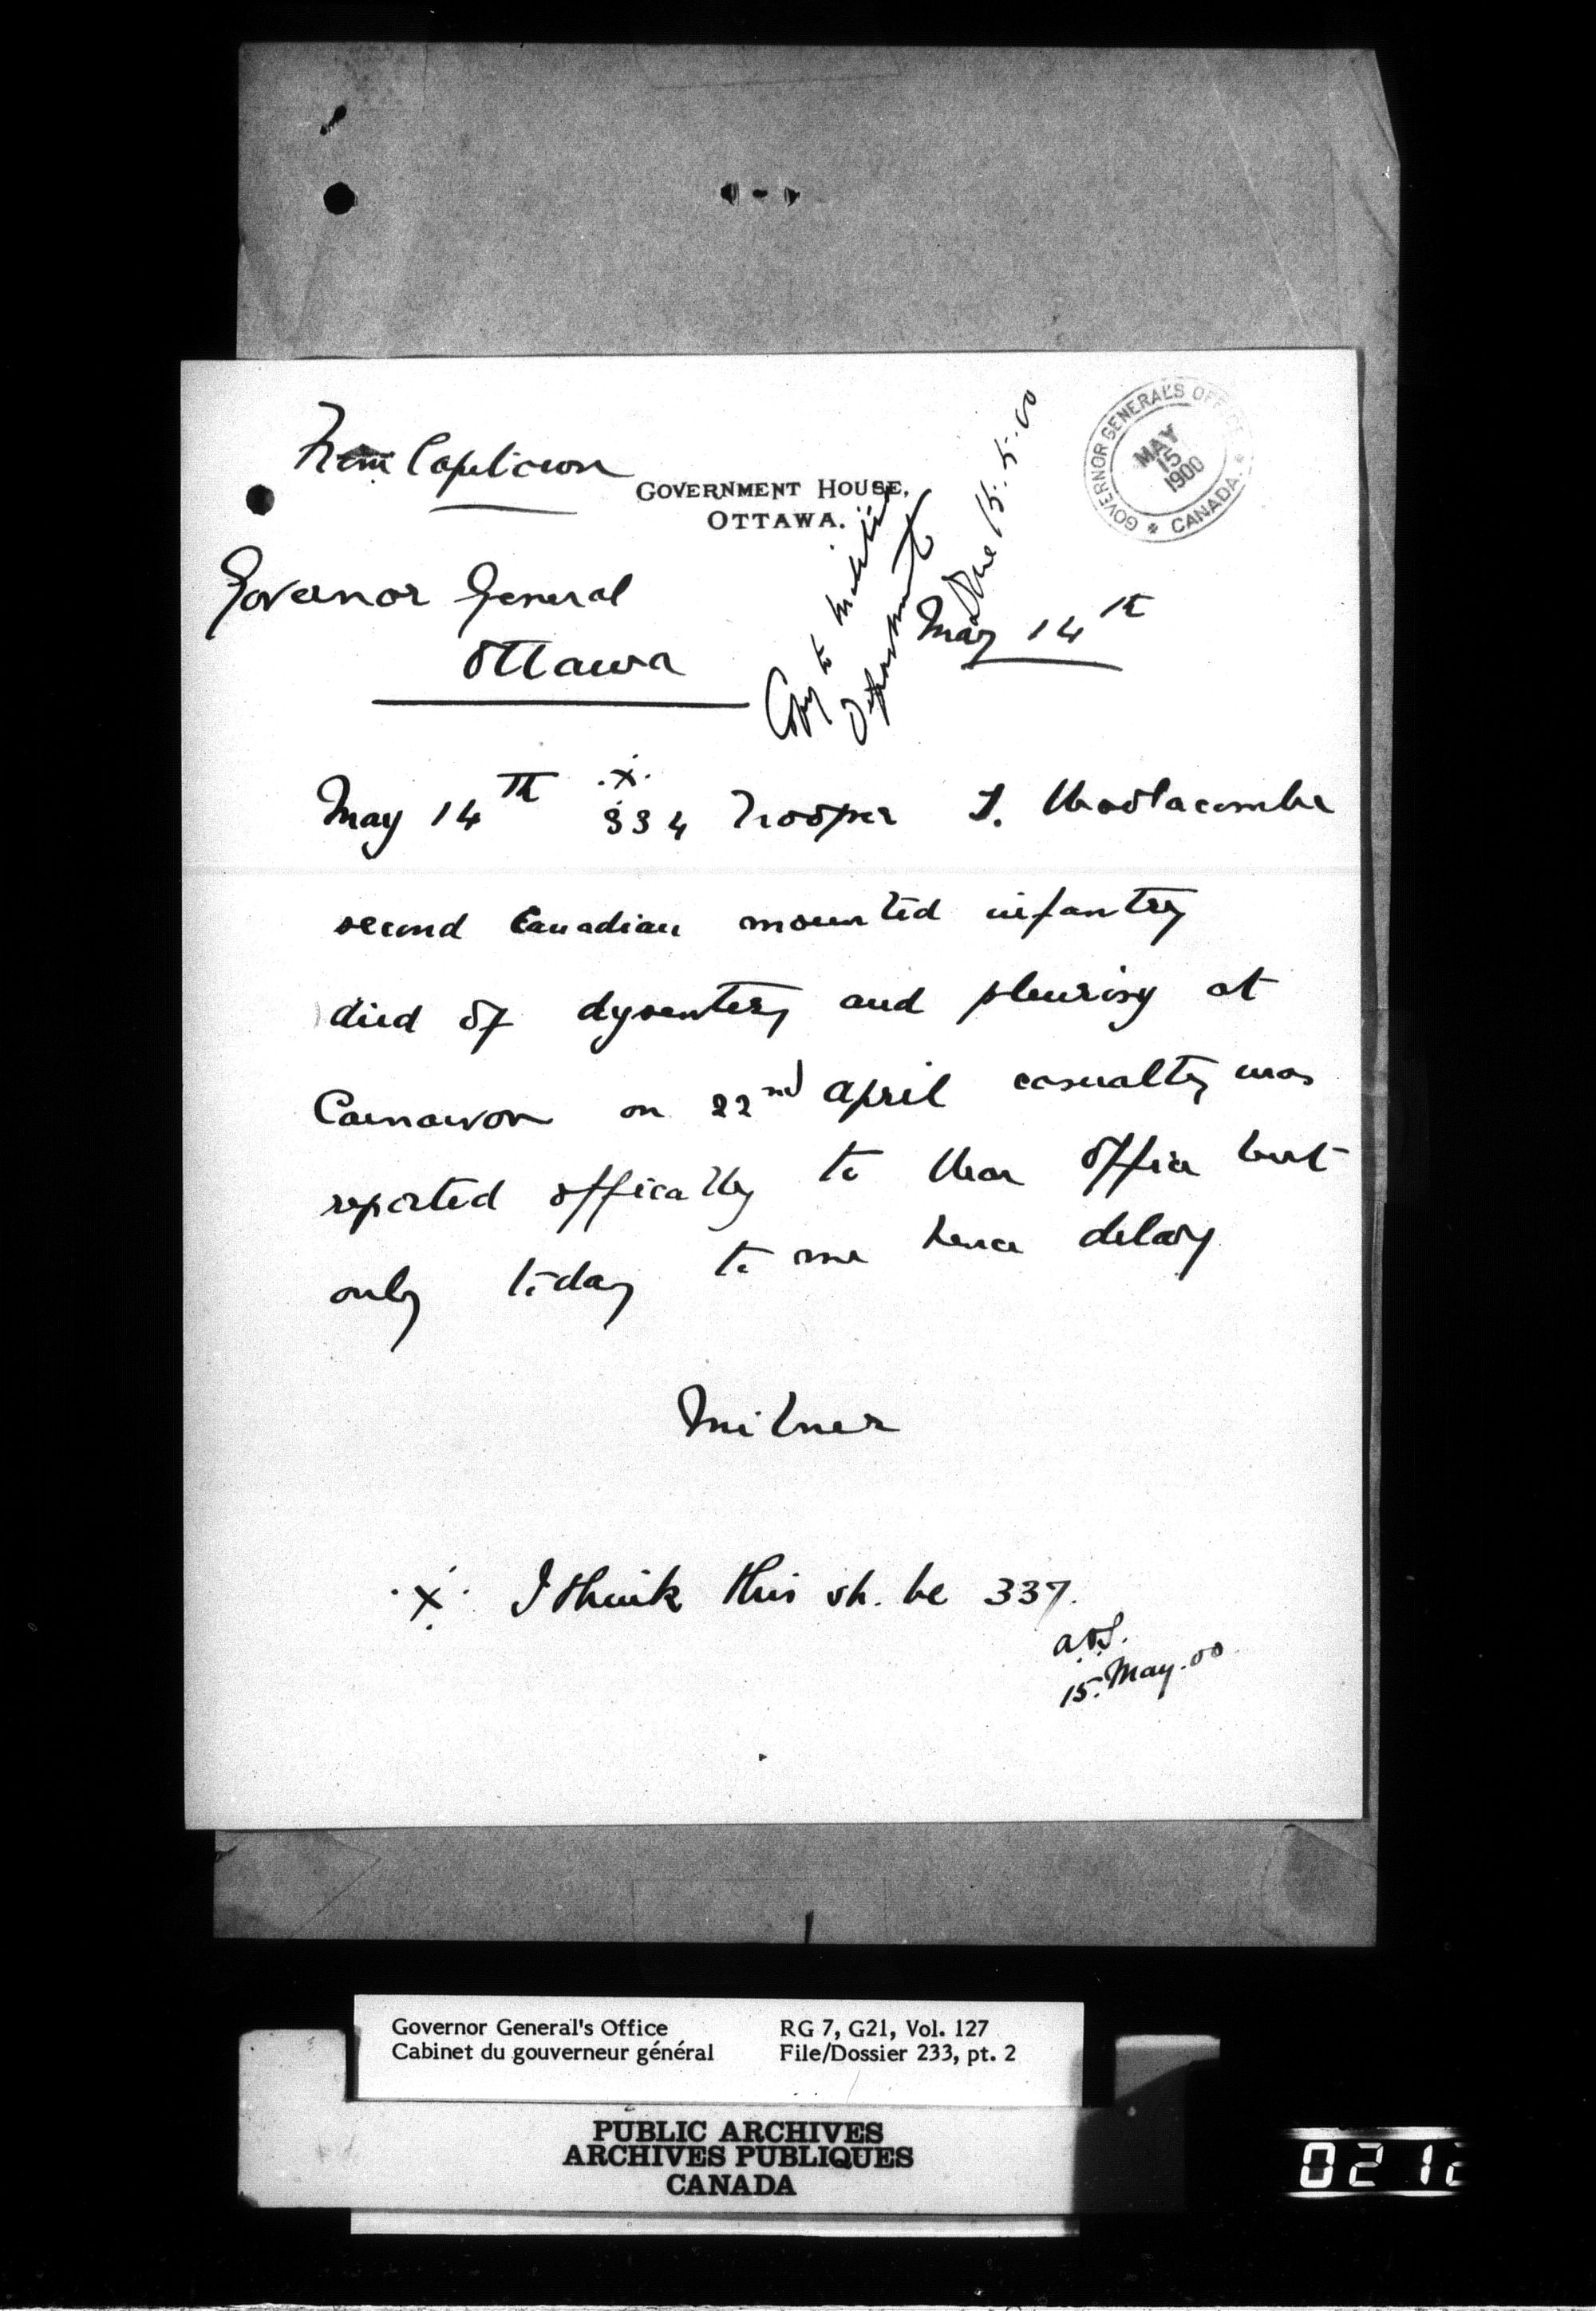 From Capetown
GOVERNMENT HOUSE,
OTTAWA.
GOVERNOR GENERAL'S OFFICE
MAY
15
1900
* CANADA. *
Governor General
Ottawa
Copy to Militia
Department
Done 15.5.00
May 14th
May 14th .x. 334 Trooper T. Woolacombe
second Canadian mounted infantry
died of dysentery and pleurisy at
Carnarvon on 22nd April casualty was
reported officially to War Office but
only today to me hence delay
Milner
.x. I think this sh. be 337.
15. May. 00
Governor General's Office
Cabinet du gouverneur général
RG 7, G21, Vol. 127
File/Dossier 233, pt. 2
PUBLIC ARCHIVES
ARCHIVES PUBLIQUES
CANADA
0212